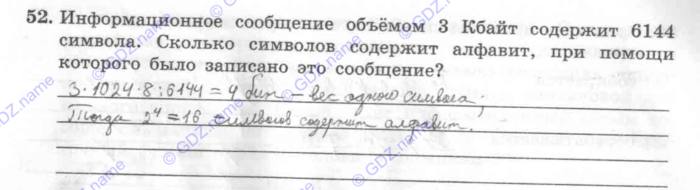 52. Информационное сообщение объёмом 3 Кбайт содержит 6144
символа. Сколько символов содержит алфавит, при помощи
которого было записано это сообщение?
3·1024·8:6144=4 бит – вес одного символа;
Тогда 2⁴=16 символов содержит алфавит.
© GDZ.name